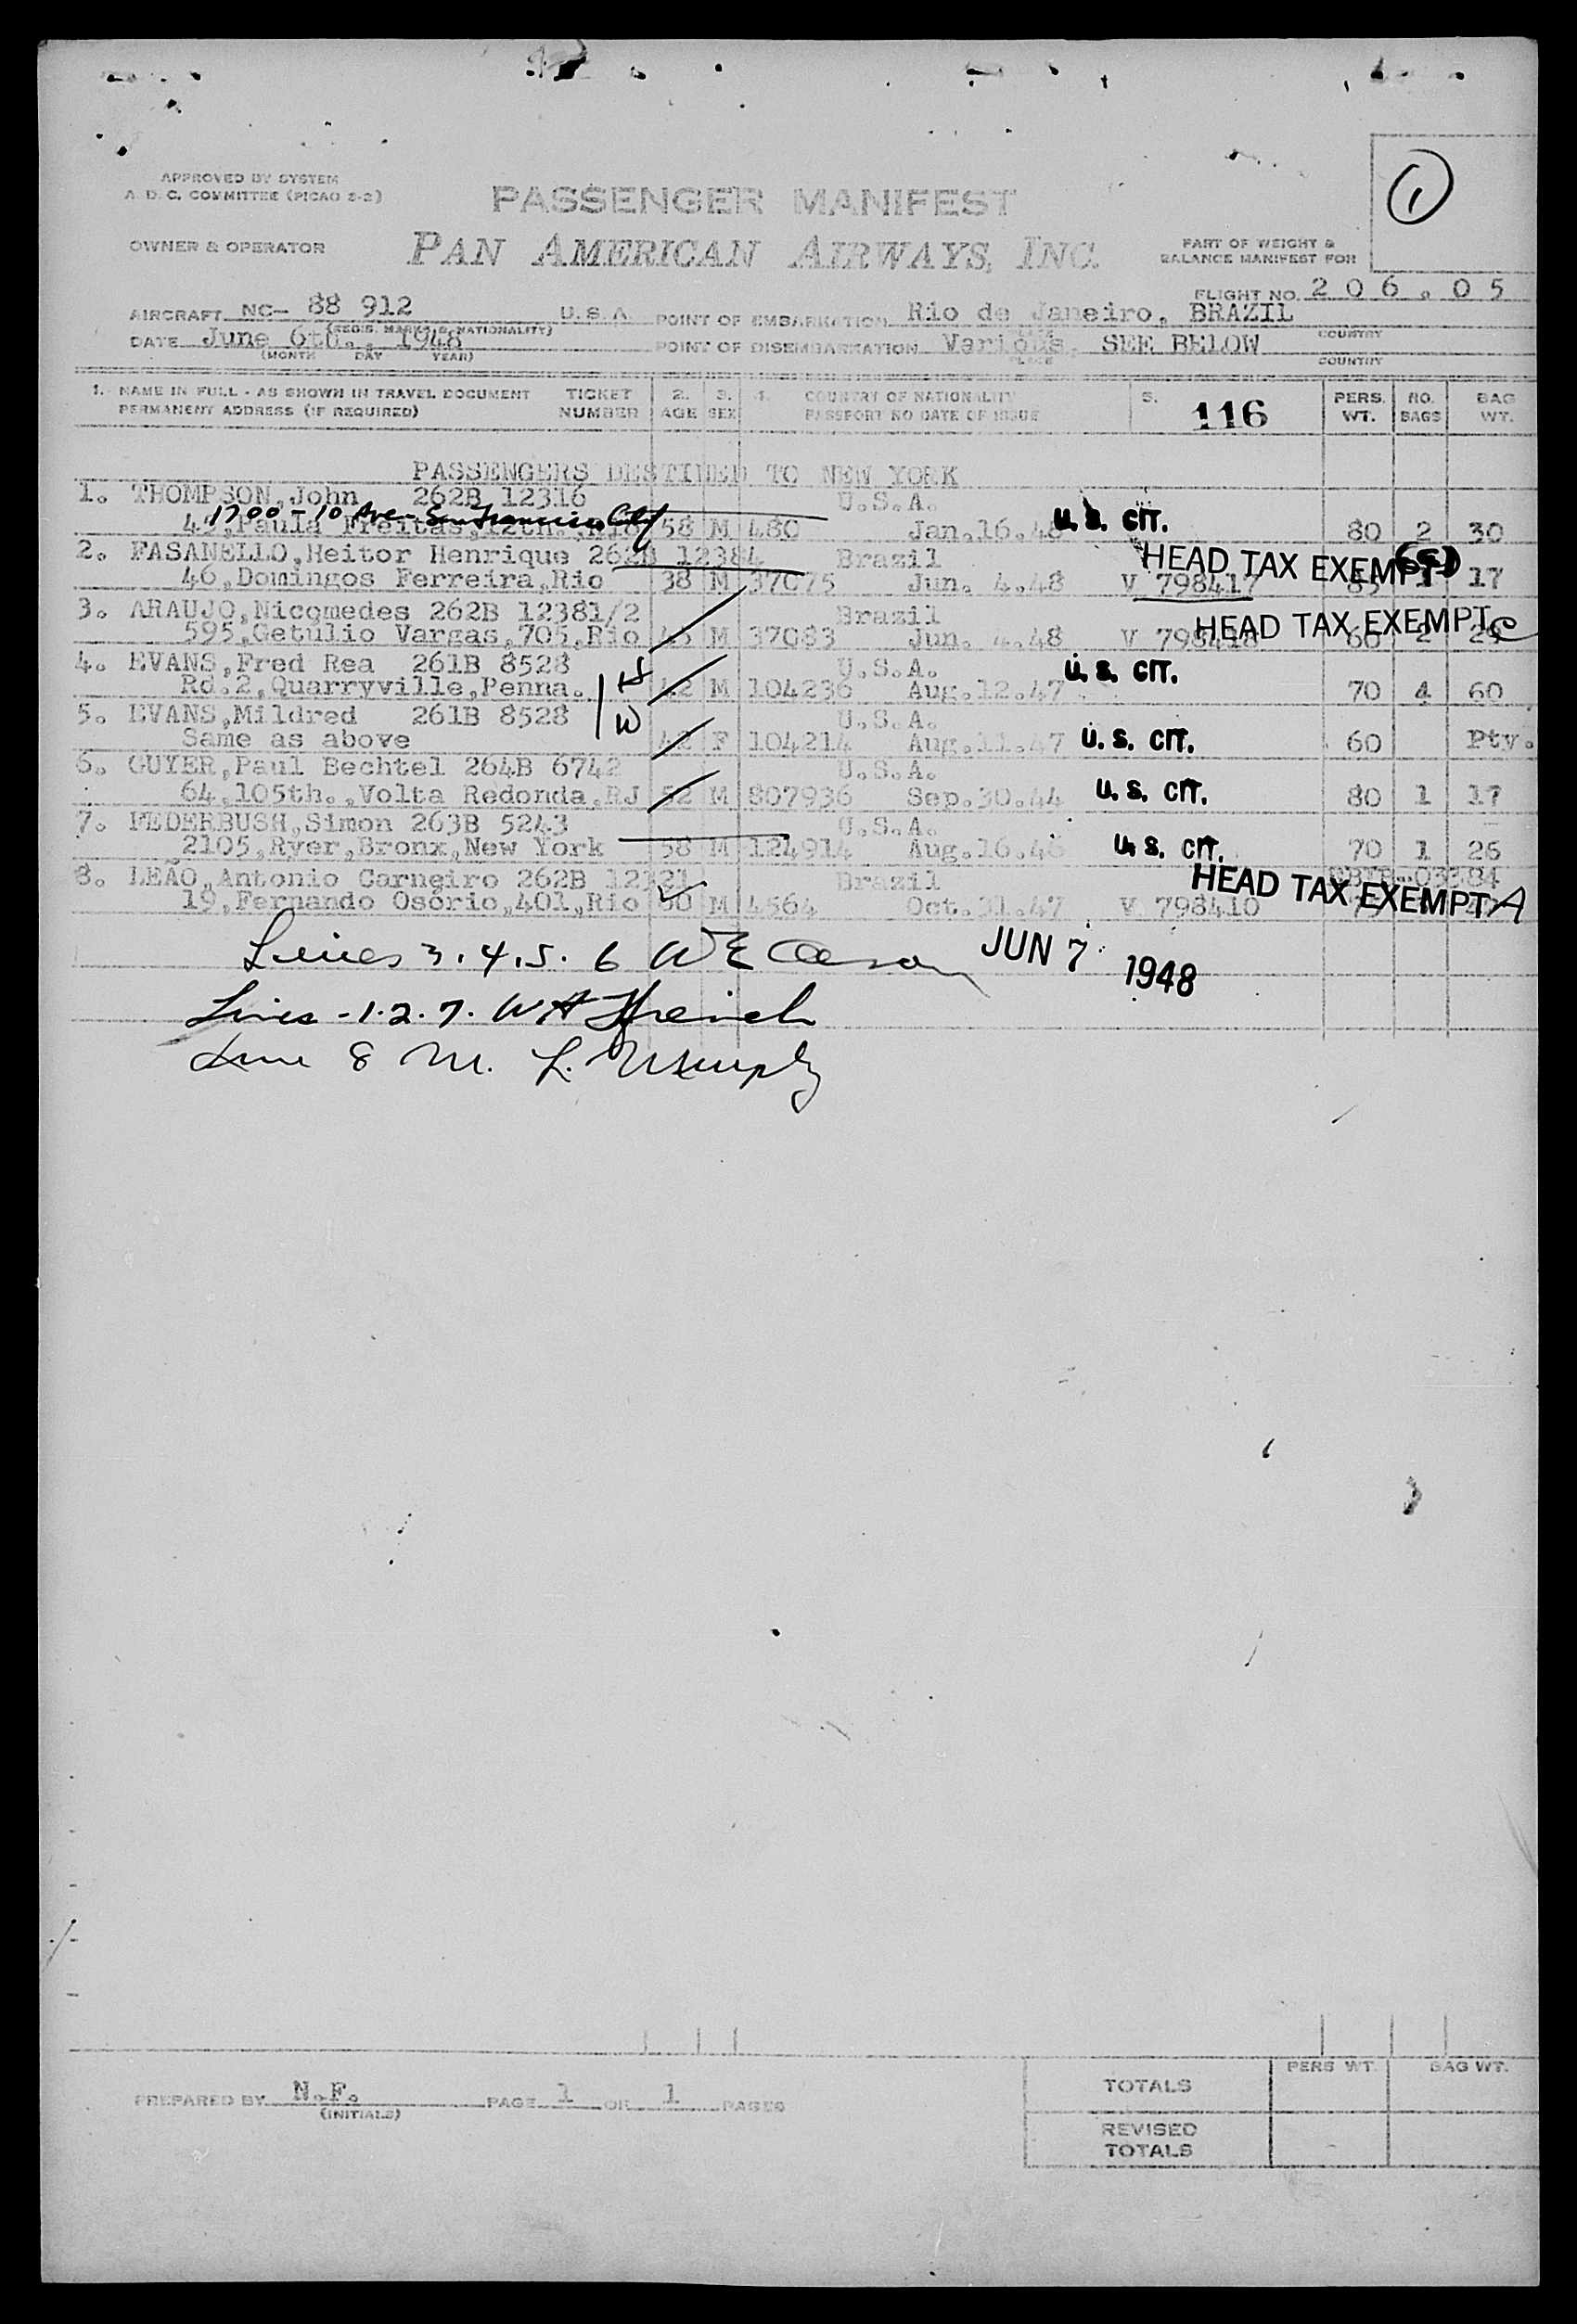 APPROVED BY SYSTEM
A. D. C. COMMITTEE (PICAO 2-2)
PASSENGER MANIFEST
1
OWNER & OPERATOR
PAN AMERICAN AIRWAYS, INC.
PART OF WEIGHT &
BALANCE MANIFEST FOR
FLIGHT NO. 206.05
AIRCRAFT NC- 88 912 U.S.A. POINT OF EMBARKATION Rio de Janeiro, BRAZIL
(REGIS. MARKS & NATIONALITY) PLACE COUNTRY
DATE June 6th., 1948 POINT OF DISEMBARKATION Various, SEE BELOW
(MONTH DAY YEAR) PLACE COUNTRY
1. NAME IN FULL - AS SHOWN IN TRAVEL DOCUMENT TICKET 2. 3. 4. COUNTRY OF NATIONALITY 5. PERS. NO. BAG
PERMANENT ADDRESS (IF REQUIRED) NUMBER AGE SEX PASSPORT NO DATE OF ISSUE 116 WT. BAGS WT.
PASSENGERS DESTINED TO NEW YORK
1. THOMPSON,John 262B 12316 U.S.A.
1700 - 10 Ave - San Francisco Calif
Paula Freitas,12th.,Rio 58 M 480 Jan.16.48 U. S. CIT. 80 2 30
2. FASANELLO,Heitor Henrique 262B 12384 Brazil HEAD TAX EXEMPT
46,Domingos Ferreira,Rio 38 M 37075 Jun. 4.48 V 798417 85 1 17
3. ARAUJO,Nicomedes 262B 12381/2 Brazil HEAD TAX EXEMPT
595,Getulio Vargas,705,Rio M 37083 Jun. 4.48 V 798418 60 2
4. EVANS,Fred Rea 261B 8528 H U.S.A. U. S. CIT.
Rd.2,Quarryville,Penna. 42 M 104236 Aug.12.47 70 4 60
5. EVANS,Mildred 261B 8528 W U.S.A.
Same as above 42 F 104214 Aug.11.47 U. S. CIT. 60 Pty.
6. GUYER,Paul Bechtel 264B 6742 U.S.A.
64,105th.,Volta Redonda,RJ 52 M 807936 Sep.30.44 U. S. CIT. 80 1 17
7. FEDERBUSH,Simon 263B 5243 U.S.A.
2105,Ryer,Bronx,New York 58 M 124914 Aug.16.46 U. S. CIT. 70 1 26
8. LEÃO,Antonio Carneiro 262B 12121 Brazil HEAD TAX EXEMPT A
19,Fernando Osório,401,Rio 60 M 4564 Oct.31.47 V 798410
Lines 3.4.5. 6 W E JUN 7 1948
Lines -1.2.7. W A French
Line 8 M. L. Murphy
PREPARED BY N.F. PAGE 1 OF 1 PAGES
(INITIALS)
PERS WT. BAG WT.
TOTALS
REVISED
TOTALS